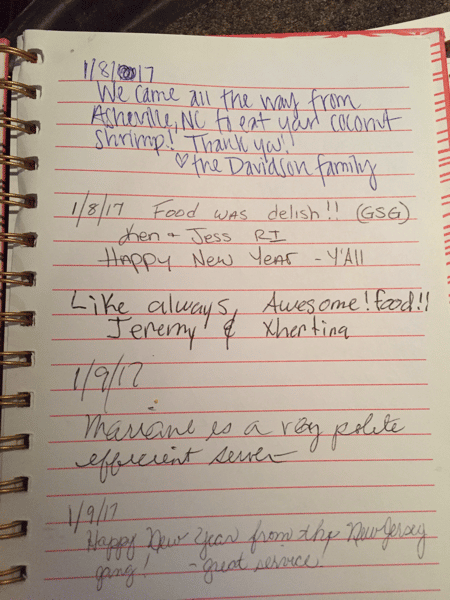 1/8/17
We came all the way from
Asheville, NC to eat your coconut
shrimp!! Thank you!
♡ the Davidson family
1/8/17 Food was delish!! (GSG)
Ken + Jess RI
Happy New Year - Y'All
Like always, Awesome! food!!
Jeremy & Xhertina
1/9/17
is a very polite
efficient server
1/9/17
Happy New Year from the New Jersey
gang! - great service.